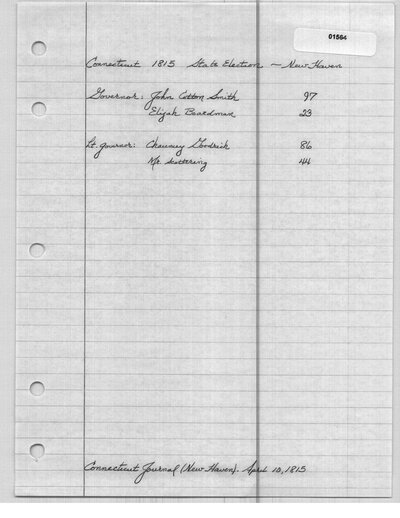 01564
Connecticut 1815 State Election – New Haven
Governor: John Cotton Smith 97
Elijah Boardman 23
Lt. governor: Chauncey Goodrich 86
Mr. Scattering 44
Connecticut Journal (New Haven). April 10, 1815